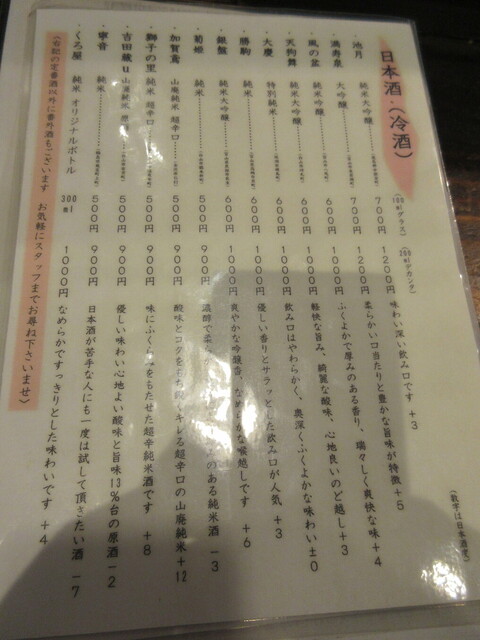 日本酒（冷酒）
（100mlグラス）
（200mlデカンタ）
（数字は日本酒度）
・池月 純米大吟醸 700円 1200円 味わい深い飲み口です +3
・満寿泉 大吟醸 700円 1200円 柔らかい口当たりと豊かな旨味が特徴+5
・風の盆 純米吟醸 600円 1000円 ふくよかで厚みのある香り、瑞々しく爽快な味+4
・天狗舞 純米大吟醸 600円 1000円 軽快な旨み、綺麗な酸味、心地良いのど越し+3
・大慶 特別純米 600円 1000円 飲み口はやわらかく、奥深くふくよかな味わい±0
・勝駒 純米 600円 1000円 優しい香りとサラッとした飲み口が人気 +3
・銀盤 純米大吟醸 600円 1000円 爽やかな吟醸香、なめらかな喉越しです +6
・菊姫 純米 500円 900円 濃醇で柔ら みのある純米酒 -3
・加賀鳶 山廃純米 超辛口 500円 900円 酸味とコクをもち キレる超辛口の山廃純米+12
・獅子の里 純米 超辛口 500円 900円 味にふくらみをもたせた超辛純米酒です +8
・吉田蔵u 山廃純米 原酒 500円 900円 優しい味わい心地よい酸味と旨味13%台の原酒 -2
純米 500円 900円 日本酒が苦手な人にも一度は試して頂きたい酒 -7
・くろ屋 純米 オリジナルボトル 300ml 1000円 なめらかですっきりとした味わいです +4
（右記の定番酒以外に番外酒もございます お気軽にスタッフまでお尋ね下さいませ）